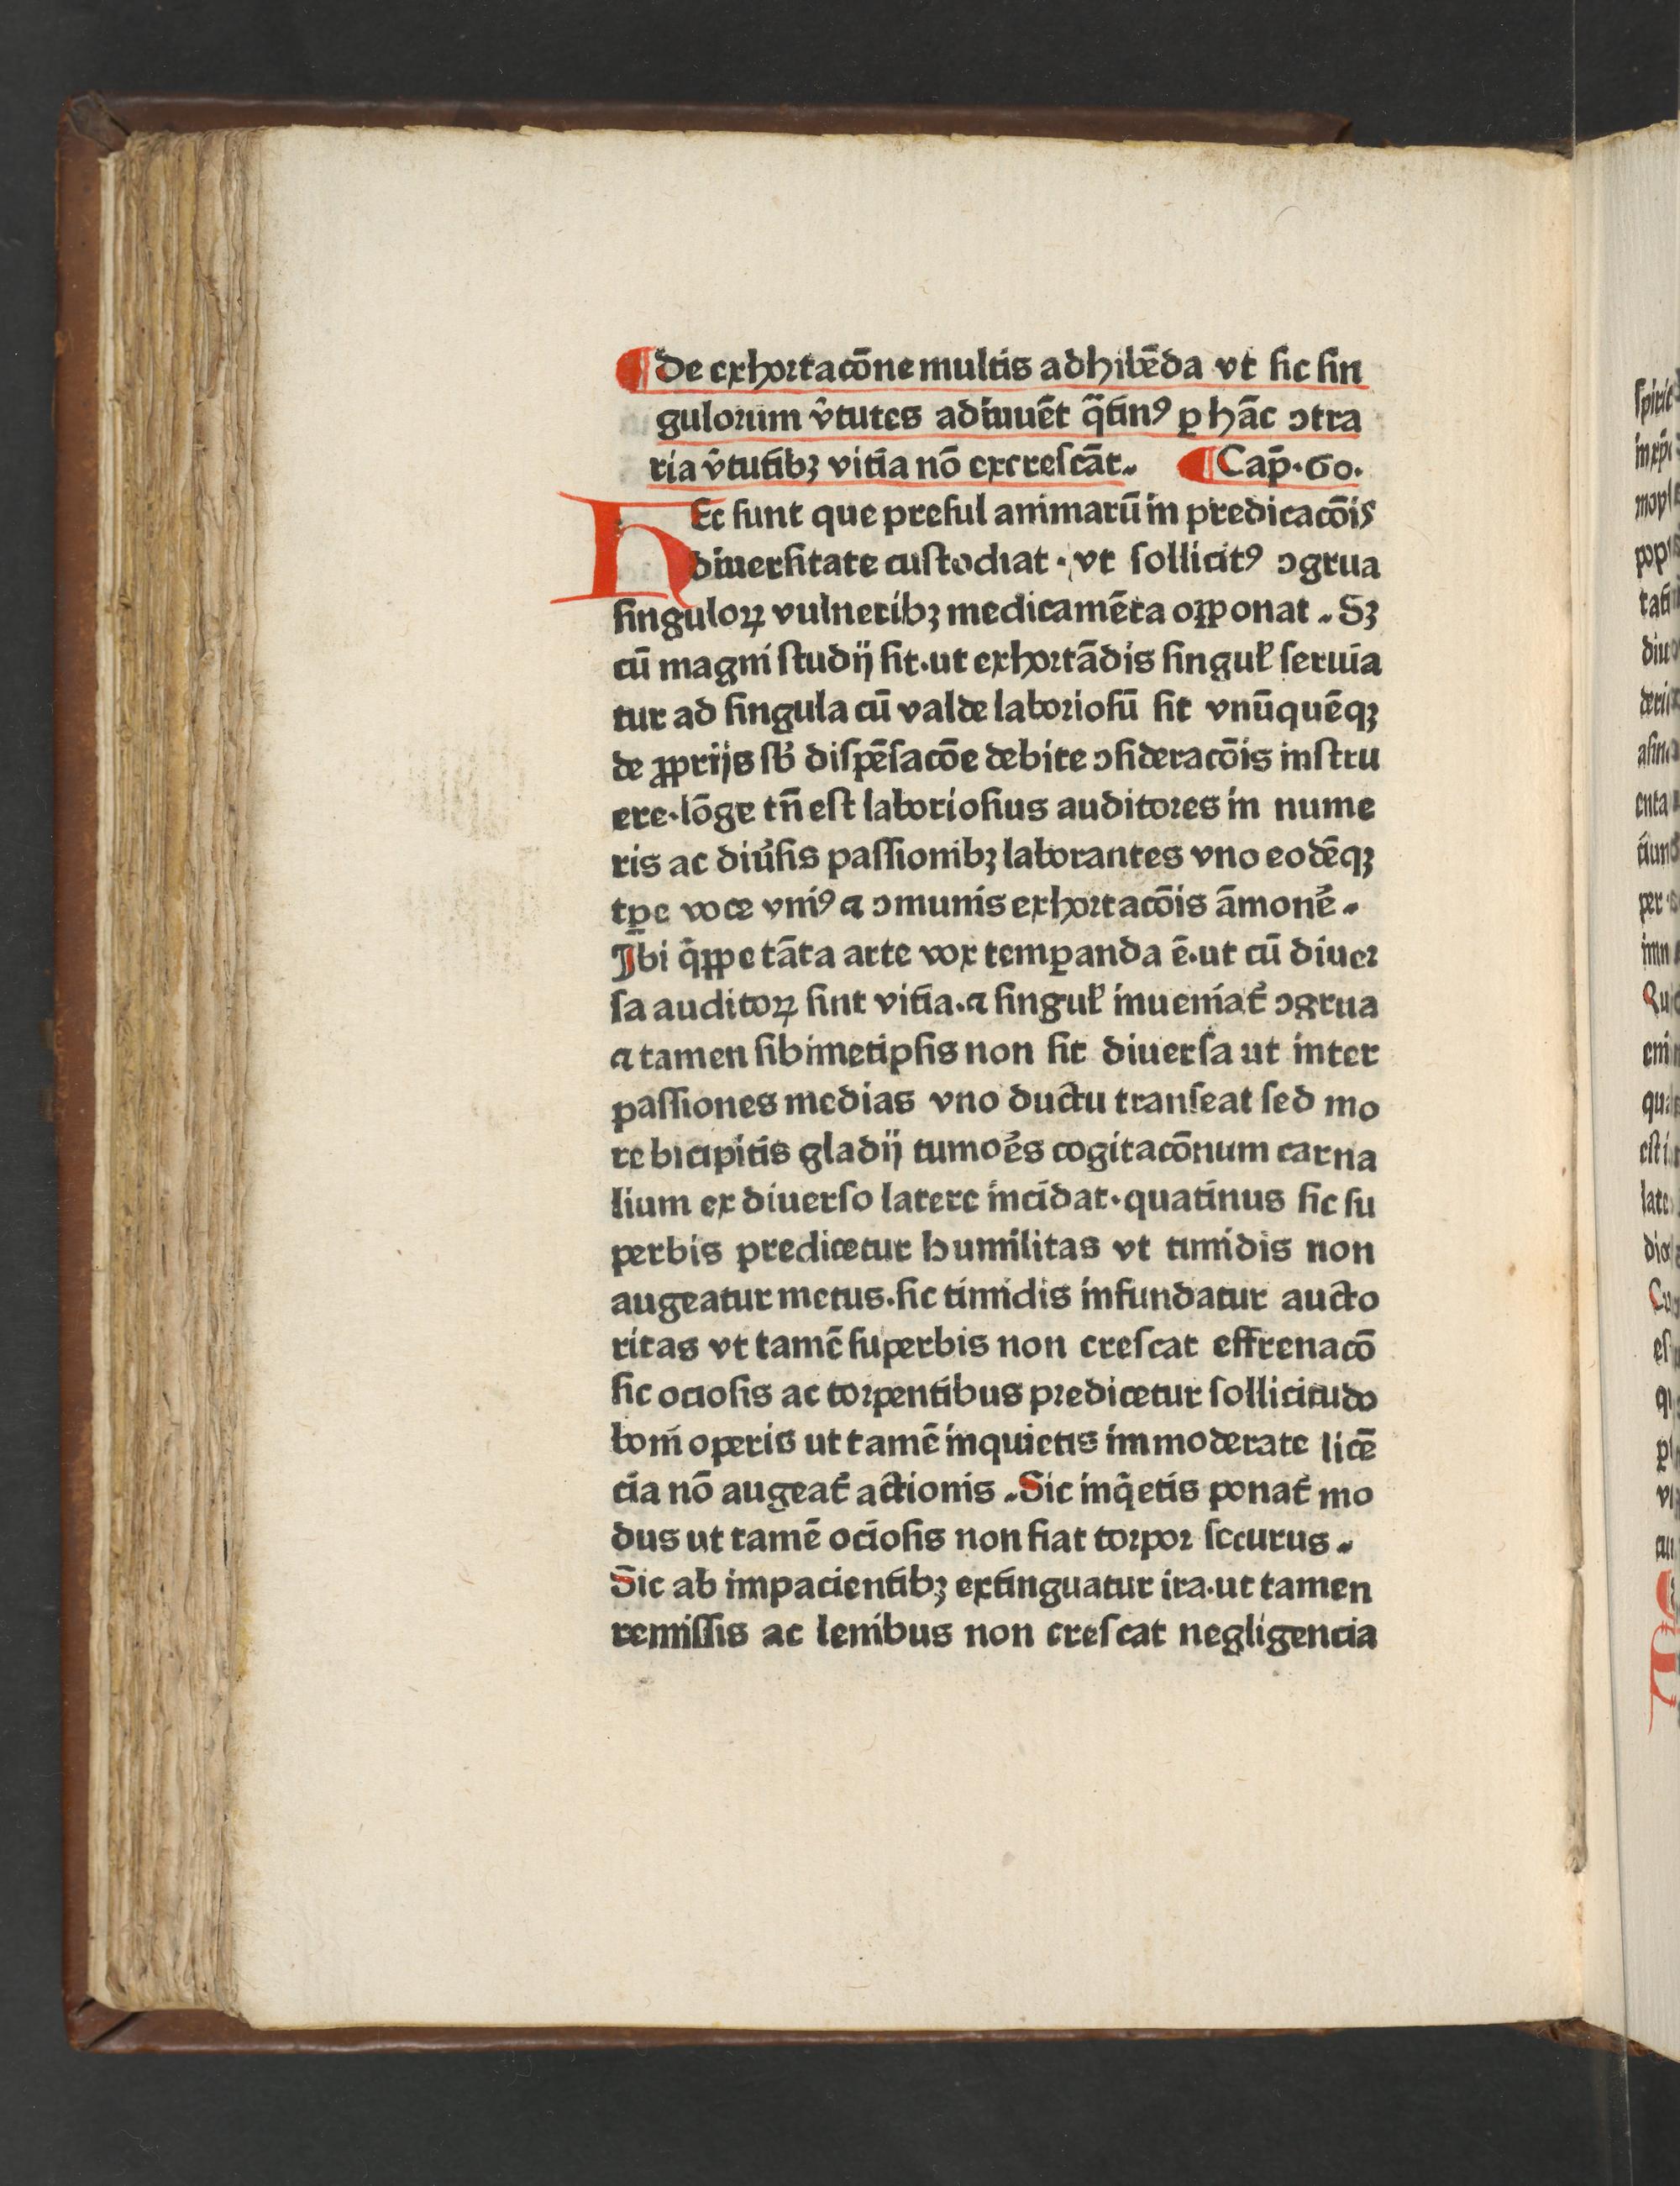 ¶De exhortacōne multis adhibēda vt ſic ſin
gulorum v̄tutes adiuuēt q̄tinꝰ ꝑ hāc ↄtra
ria v̄tutibꝫ vitia nō excreſcāt. ¶Cap̄.60.
HEc ſunt que preſul animarū in predicacōis
diuerſitate cuſtodiat · vt ſollicitꝰ ↄgrua
ſinguloꝝ vulneribꝫ medicamēta oꝑponat . Sꝫ
cū magni ſtudij ſit·ut exhortādis ſingul̓ ſeruia
tur ad ſingula cū valde laborioſū ſit vnūquēqꝫ
de ꝓprijs ſb̓ diſpēſacōe debite ↄſideracōis inſtru
ere·lōge tn̄ eſt laborioſius auditores in nume
ris ac diu̓ſis paſſionibꝫ laborantes vno eodēqꝫ
tꝑe voce vniꝰ ⁊ ↄmunis exhortacōis āmone᷑ .
Ibi q̄ꝑpe tāta arte vox temꝑanda ē·ut cū diuer
ſa auditoꝝ ſint vitia·⁊ ſingul̓ inueniat᷑ ↄgrua
⁊ tamen ſibimetipſis non ſit diuerſa ut inter
paſſiones medias vno ductu tranſeat ſed mo
re bicipitis gladij tumo᷑es cogitacōnum carna
lium ex diuerſo latere incidat·quatinus ſic ſu
perbis predicetur humilitas vt timidis non
augeatur metus·ſic timidis infundatur aucto
ritas vt tamē ſuperbis non creſcat effrenacō
ſic ocioſis ac torpentibus predicetur ſollicitudo
boni operis ut tamē inquietis immoderate licē
cia nō augeat᷑ actionis . Sic inq̄etis ponat᷑ mo
dus ut tamē ocioſis non fiat torpor ſecurus .
Sic ab impacientibꝫ extinguatur ira·ut tamen
remiſſis ac lenibus non creſcat negligencia